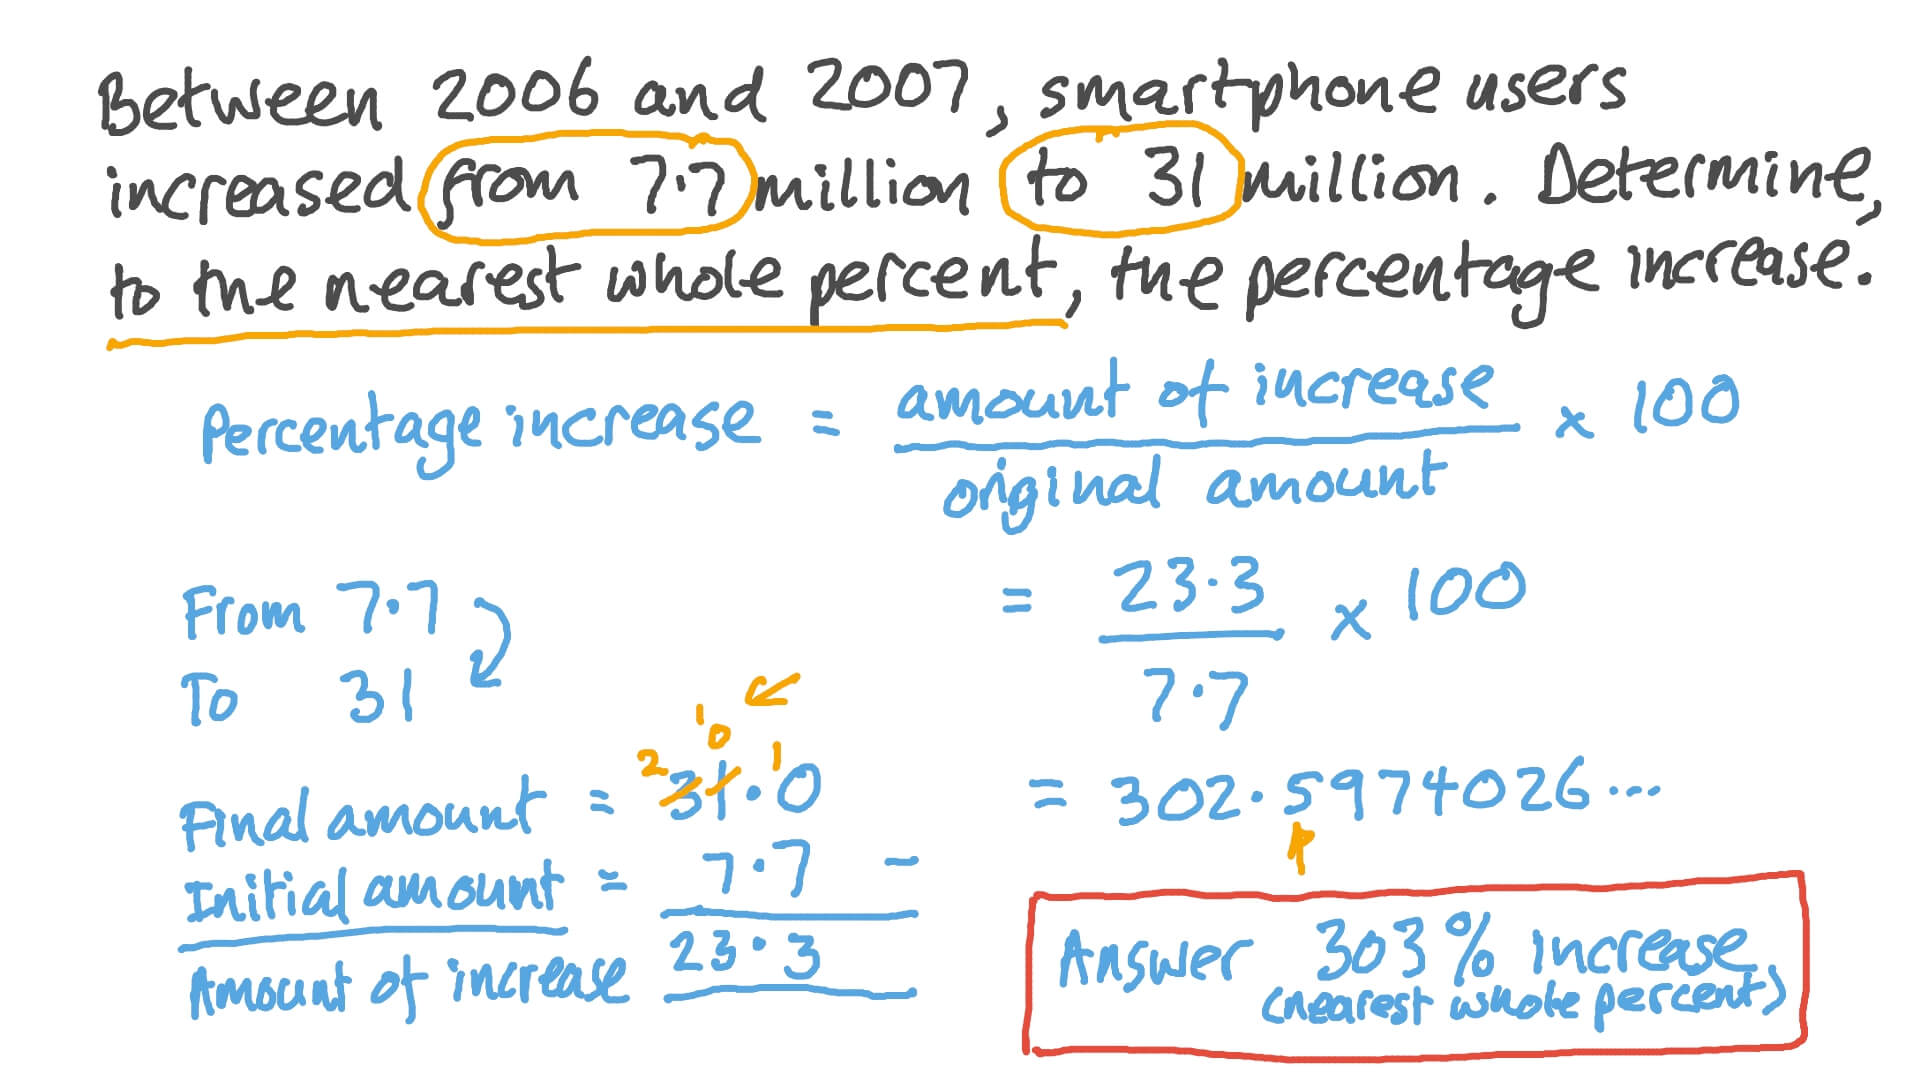 Between 2006 and 2007, smartphone users
increased from 7.7 million to 31 million. Determine,
to the nearest whole percent, the percentage increase.
Percentage increase = amount of increase × 100
original amount
From 7.7
To 31
= 23.3 × 100
7.7
1
2 0 1
Final amount = 31.0
Initial amount = 7.7 -
Amount of increase 23.3
= 302.5974026...
Answer 303% increase
(nearest whole percent)